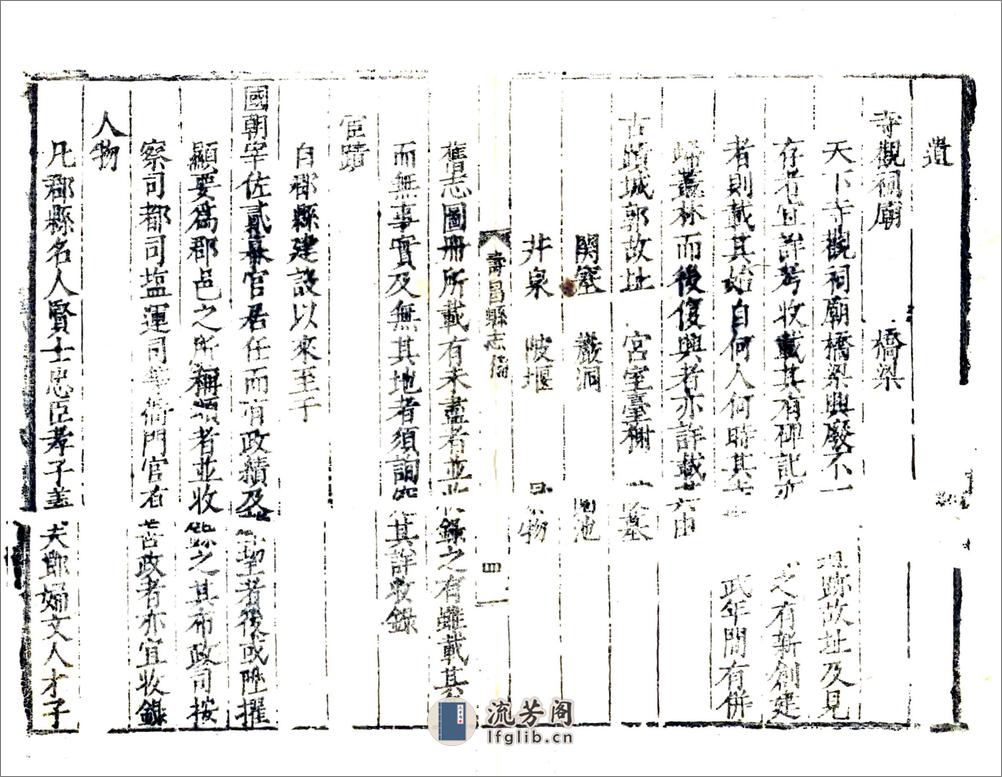 遺
寺觀祠廟 橋梁
天下寺觀祠廟橋梁興廢不一 跡故址及見
存者宜詳考收載其有碑記 之有新創建
者則載其始自何人何時其 武年間有併
歸叢林而後復興者亦詳載 由
古蹟城郭故址 宮室臺榭 墓
關塞 巖洞 池
井泉 陂堰 物
壽昌縣志 四
舊志圖冊所載有未盡者並收錄之有雖載其
而無事實及無其地者須詢 其詳收錄
宦蹟
自郡縣建設以來至于
國朝宰佐貳幕官居任而有政績及 者後或陞擢
顯要為郡邑之所稱頌者並收錄之其布政司按
察司都司盐運司等衙門官有善政者亦宜收錄
人物
凡郡縣名人賢士忠臣孝子義夫節婦文人才子
流芳阁
lfglib.cn